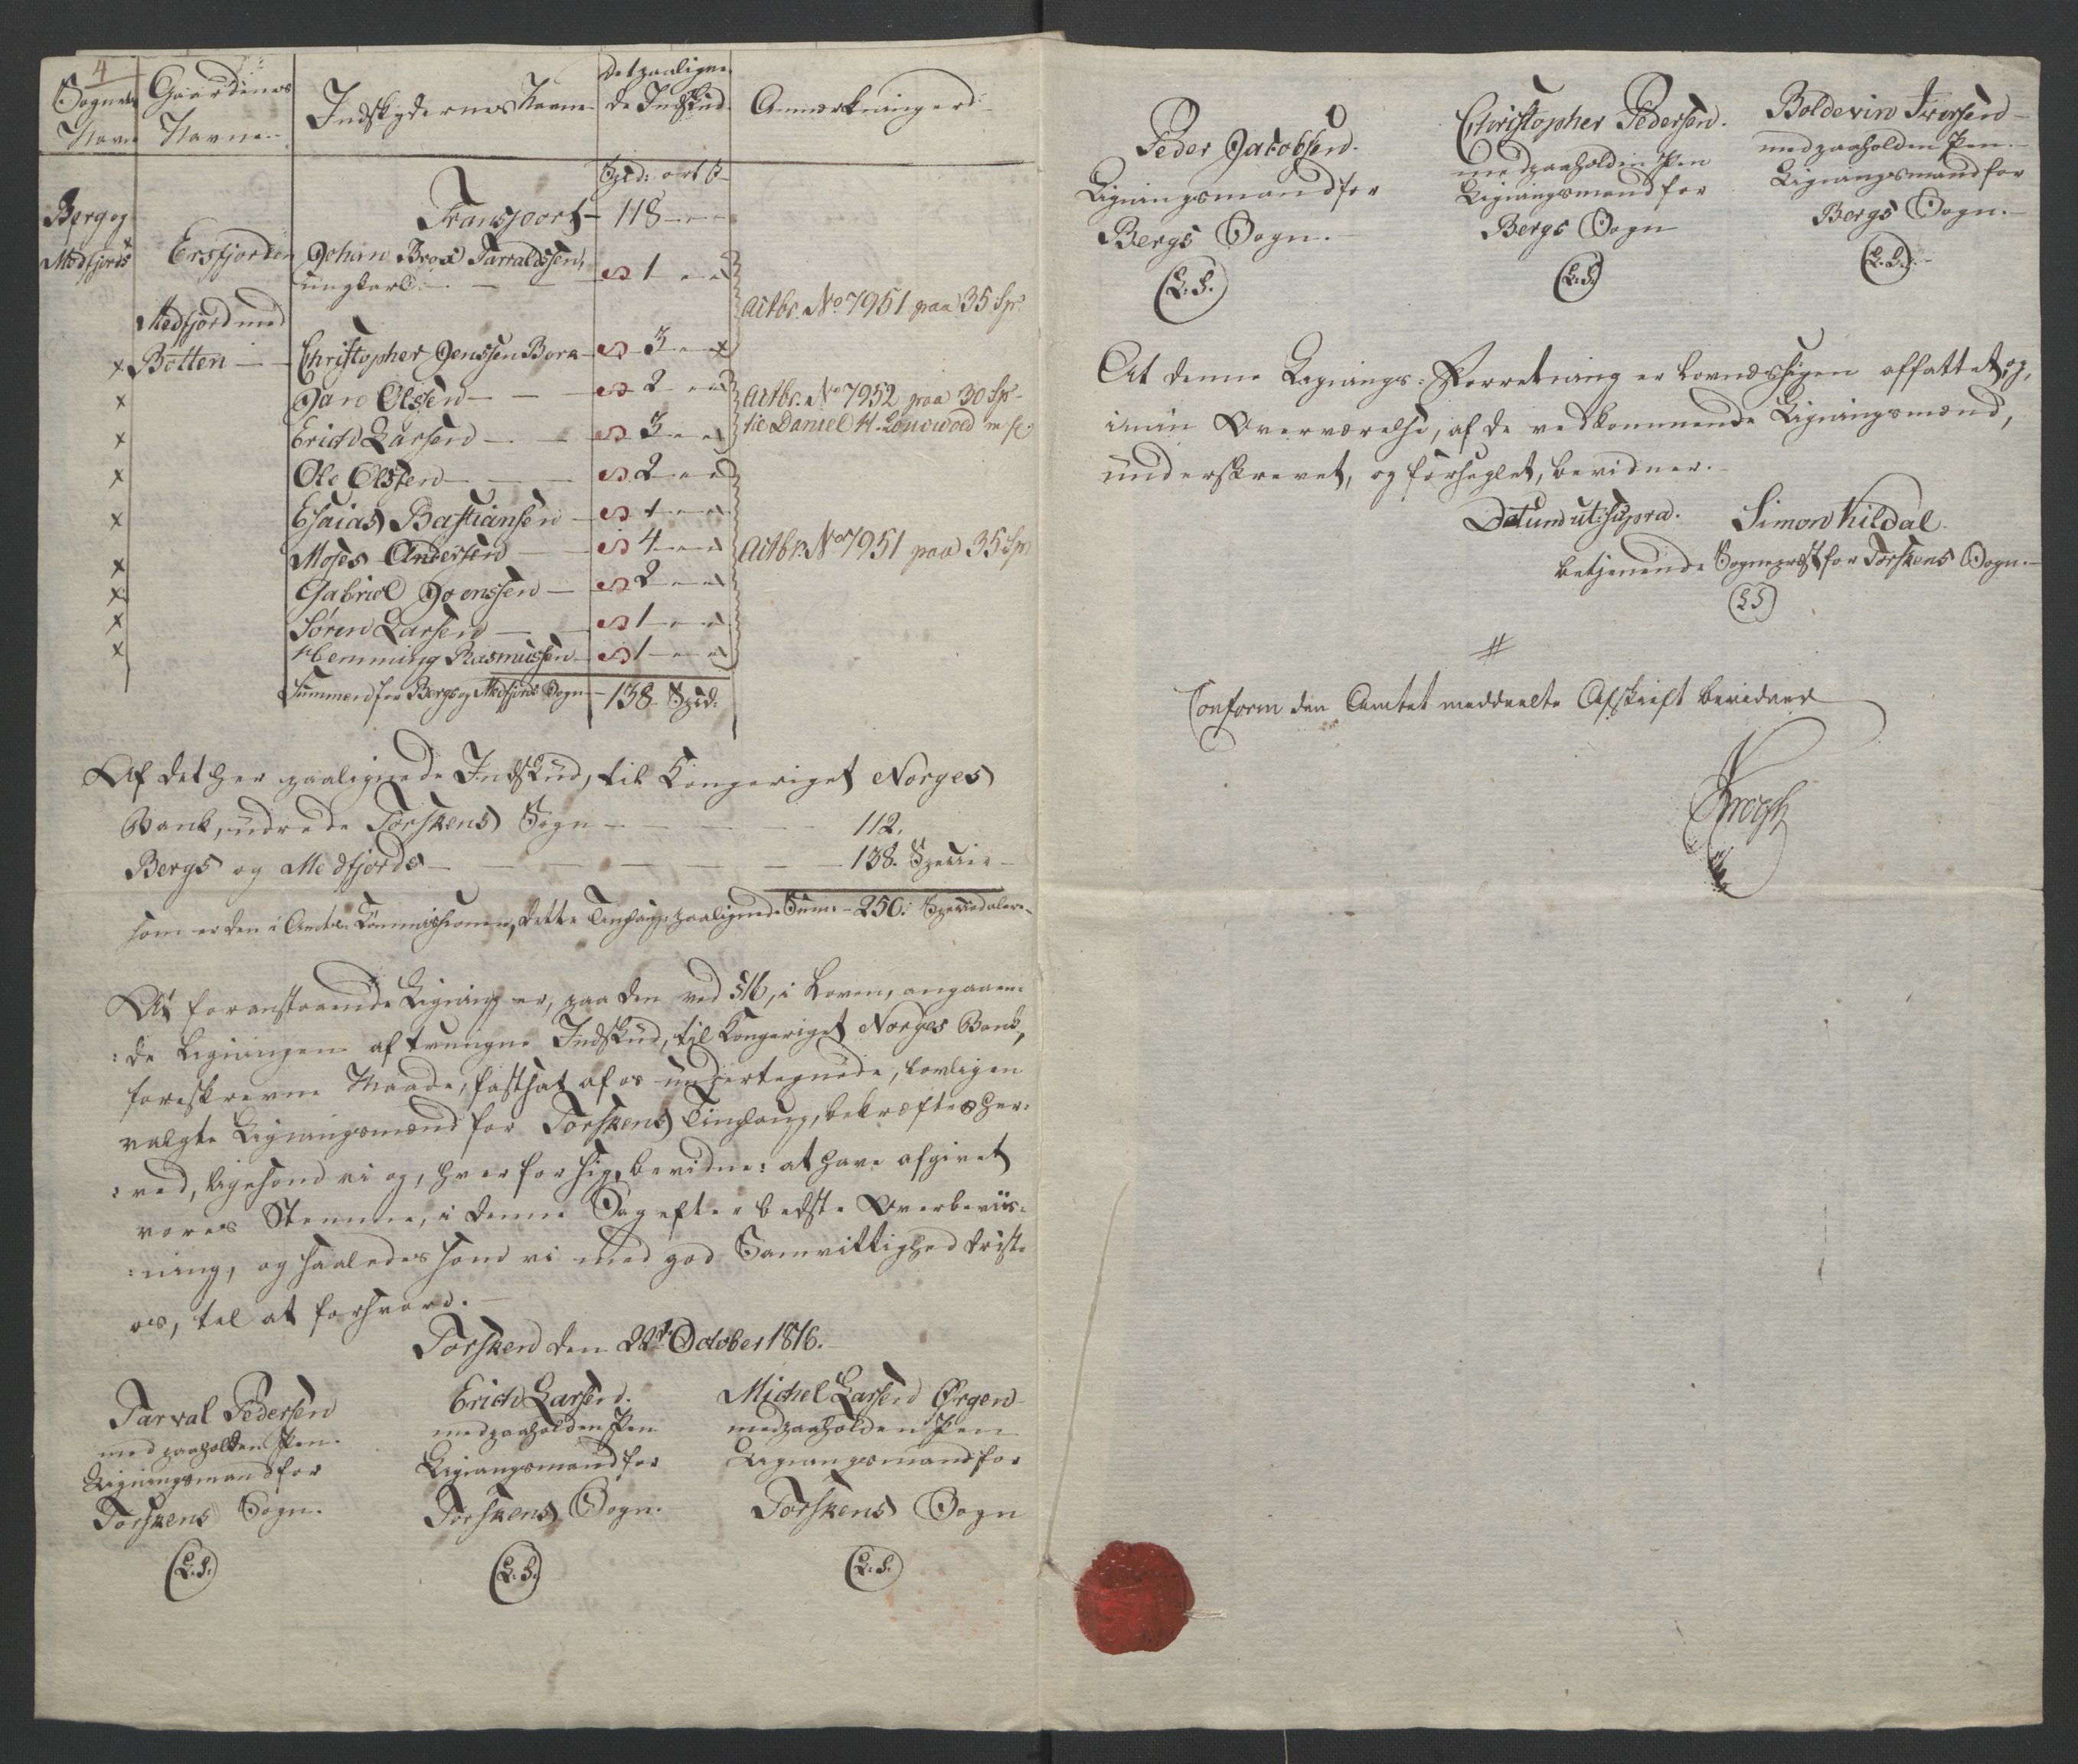 4
Sognets Navn
Gaardenes Navne
Indskydernes Navne
det paalignede Indskud
Anmærkninger
Spd: ort ß
Transport — 118 — " — "
Berg og Medfjords
x Ersfjorden Johan Brox Tarraldssen, ungkarl — S 1 — " — "
Actbr. No 7951 paa 35 Sp.
Medfjord med
x Botten — Christopher Jenssen Bora — S 3 — " — x
x Jan Olsen — S 2 — " — "
Actbr. No 7952 paa 30 Sp
x Erich Larsen — S 3 — " — "
til Daniel H.
x Ole Olsen — S 2 — " — "
x Esaias Bastiansen — S 1 — " — "
x Moses Andersen — S 4 — " — "
Actbr. No 7951 paa 35 Sp
x Gabriel Joenssen — S 2 — " — "
x Søren Larsen — S 1 — " — "
x Hemming Rasmussen — S 1 — " — "
Summen for Bergs og Medfjords Sogn — 138 Spd:
Af det her paalignede Indskud, til Kongeriget Norges
Bank, udrede Torskens Sogn — 112.
Bergs og Medfjords — 138. Specie
som er den i Amts-Commissionen, dette Tinglaug paalignede Sum — 250: Speciedalere
At foranstaaende Ligning er, paa den ved § 16, i Loven, angaaen-
:de Ligningen af tvungne Indskud, til Kongeriget Norges Bank,
foreskrevne Maade, fastsat af os undertegnede, lovligen
valgte Ligningsmænd for Torskens Tinglaug, bekræftes her:
:ved, ligesom vi og, hver for sig, bevidne: at have afgivet
vores Stemme, i denne Sag efter bedste Overbeviis:
:ning, og saaledes som vi med god Samvittighed trøste
os, til at forsvare.
Torsken den 22de October 1816.
Tarval Pedersen
med paaholden Pen.
Ligningsmand for
Torskens Sogn.
(L.S.)
Erich Larsen.
med paaholden Pen
Ligningsmand for
Torskens Sogn.
(L.S.)
Michel Larsen Ørgen
med paaholden Pen
Ligningsmand for
Torskens Sogn
(L.S.)
Peder Jacobsen.
Ligningsmand for
Bergs Sogn.
(L.S.)
Christopher Pedersen.
med paaholden Pen
Ligningsmand for
Bergs Sogn
(L.S.)
Boldevin Iversen
med paaholden Pen.
Ligningsmand for
Bergs Sogn.
(L.S.)
At denne Lignings-Forretning er lovmæssigen affattet, og,
i min Overværelse, af de vedkommende Ligningsmænd,
underskrevet, og forseglet, bevidner.
Datum ut supra. Simon Kildal.
betjenende Sognepræst for Torskens Sogn.
(LS)
#
Conform den Amtet meddeelte Afskrift bevidner
Krogh